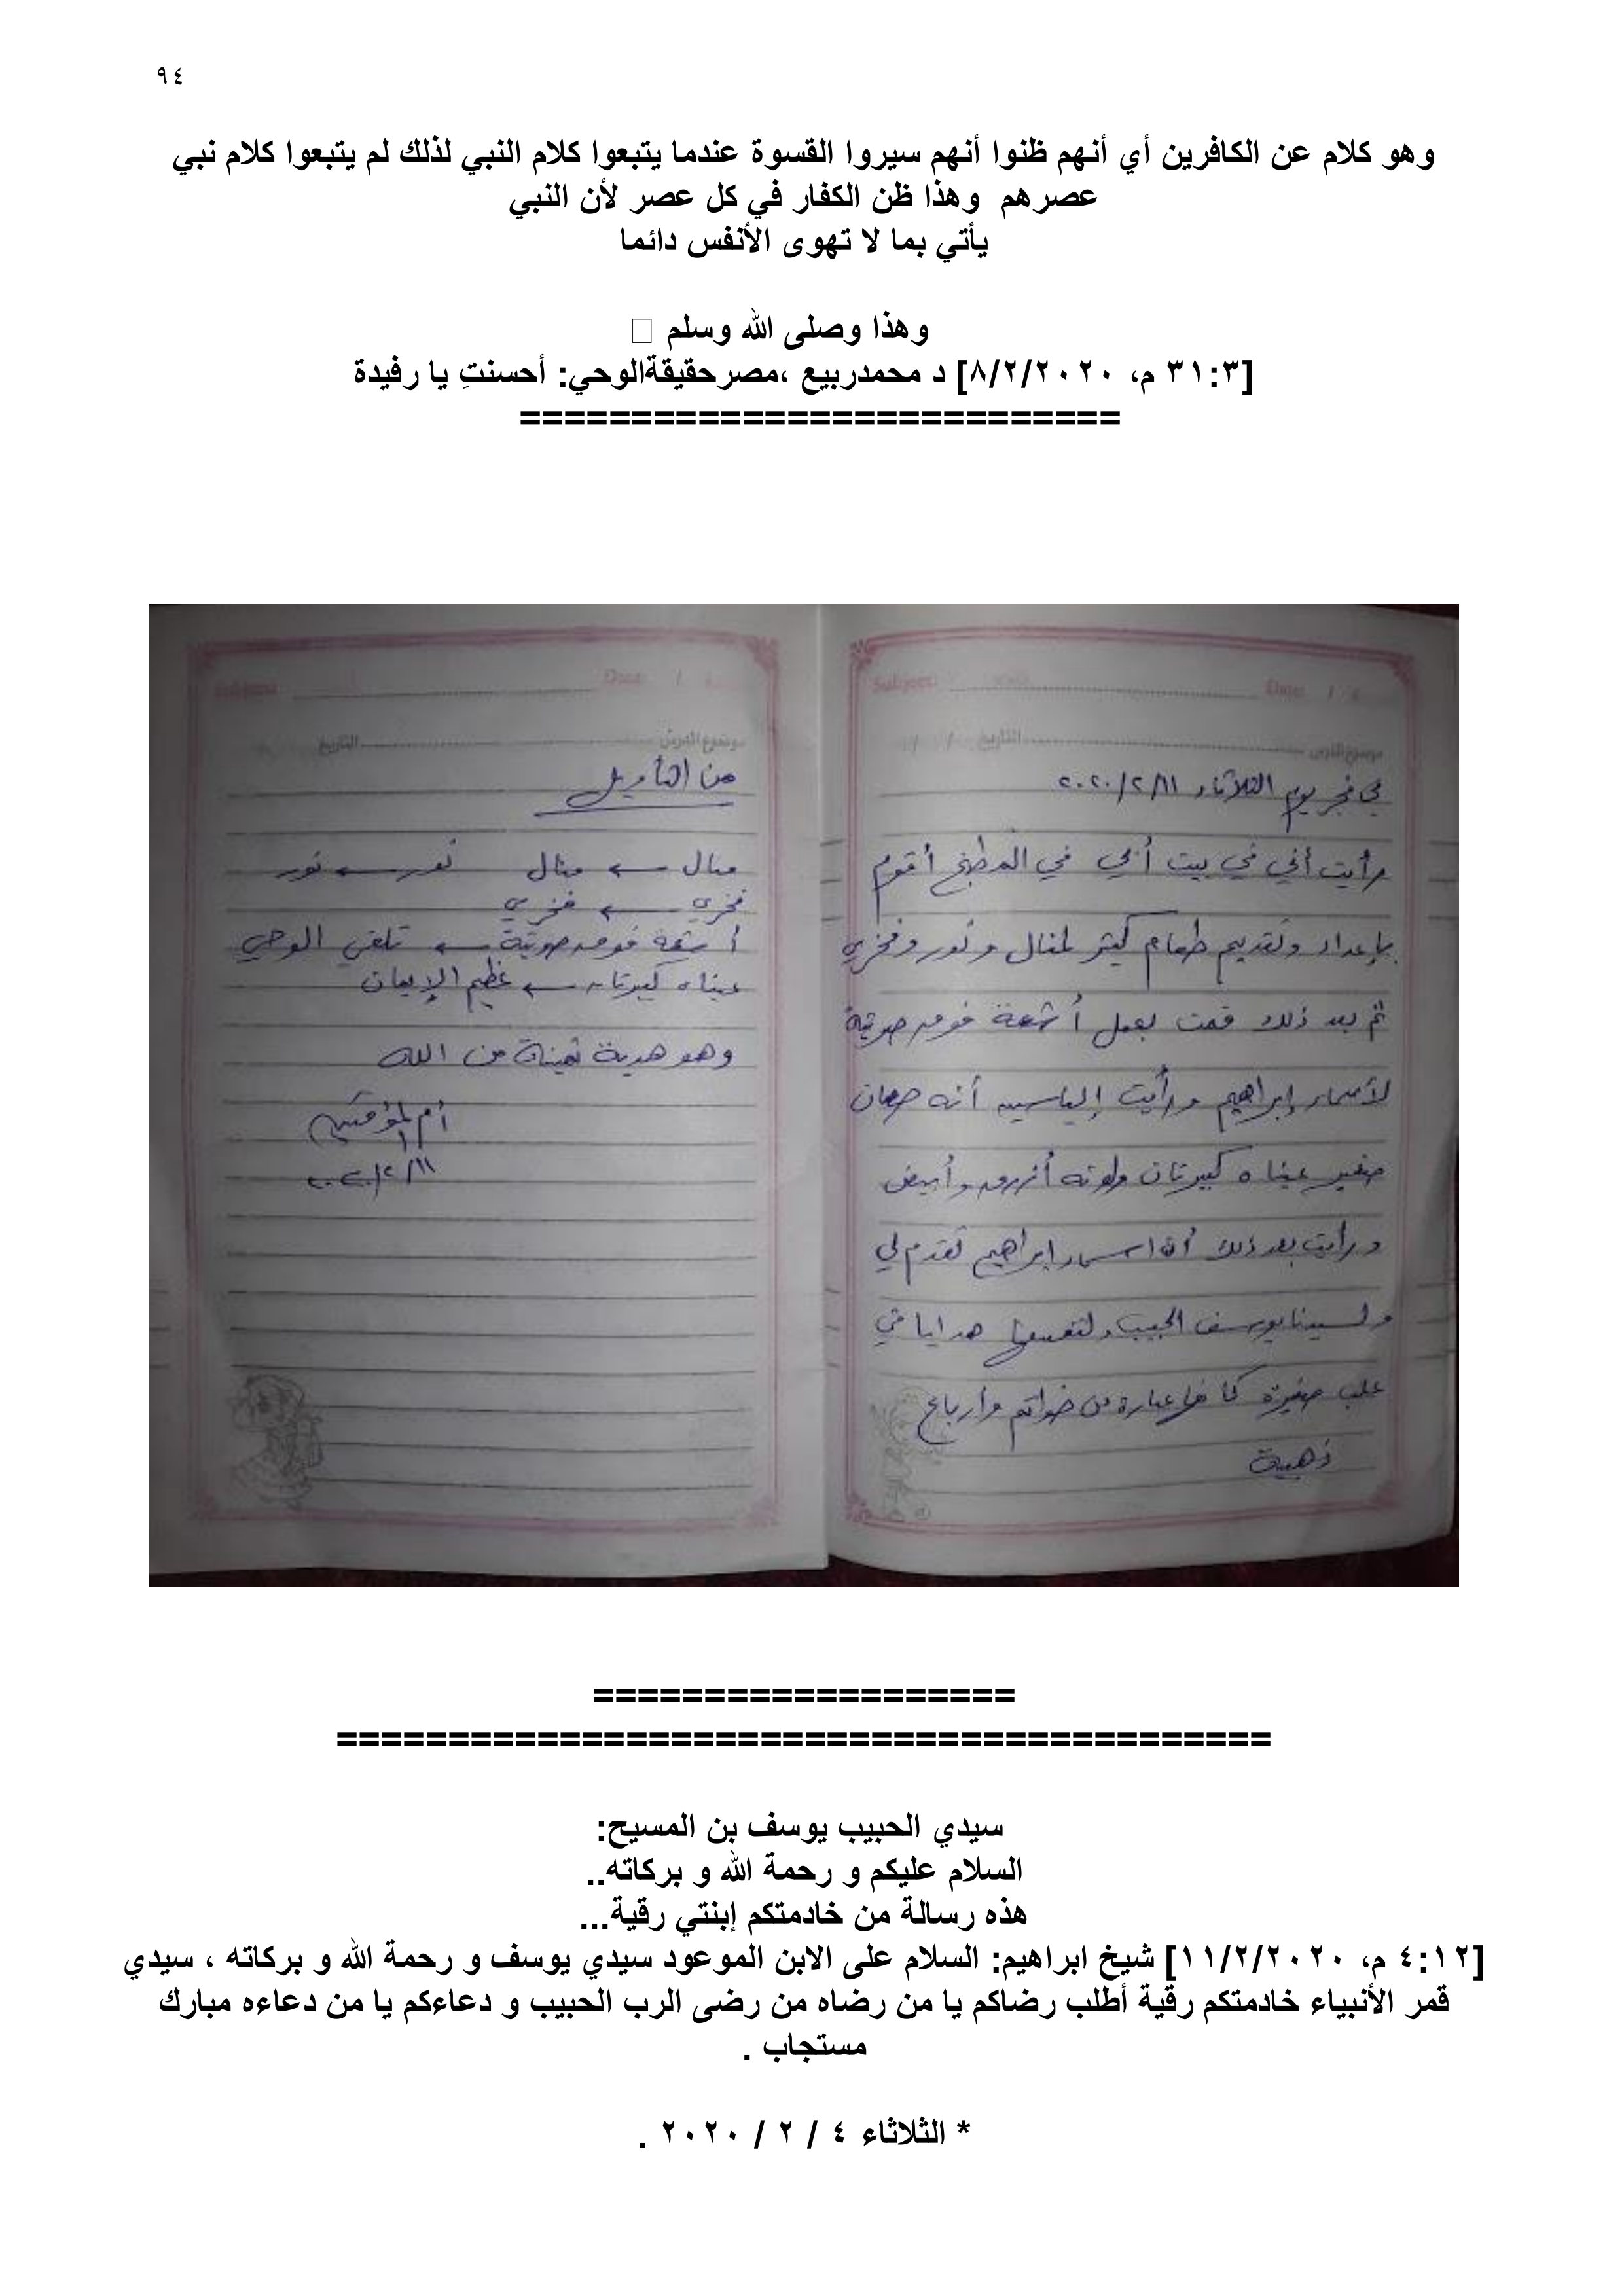 ٩٤
وهو كلام عن الكافرين أي أنهم ظنوا أنهم سيروا القسوة عندما يتبعوا كلام النبي لذلك لم يتبعوا كلام نبي
عصرهم وهذا ظن الكفار في كل عصر لأن النبي
يأتي بما لا تهوى الأنفس دائما
وهذا وصلى الله وسلم
[٣١:٣ م، ٨/٢/٢٠٢٠] د محمدربيع ،مصرحقيقةالوحي: أحسنتِ يا رفيدة
===========================
Subject: Date: / /
موضوع الدرس التاريخ / /
في فجر يوم الثلاثاء ٢٠٢٠/٢/١١
رأيت أني في بيت أبي في المطبخ أقوم
بإعداد وتقديم طعام كثير لمنال ونور وفخري
ثم بعد ذلك قمت بعمل أشعة فوق صوتية
لأسماء إبراهيم ورأيت إلياسين أنه حصان
صغير عيناه كبيرتان ولونه أزرق وأبيض
ورأيت بعد ذلك أن أسماء إبراهيم تقدم لي
ولسيدنا يوسف الحبيب ولنفسها هدايا في
علب صغيرة عبارة من خواتم
ذهبية
Subject: Date: / /
موضوع الدرس التاريخ
من التأويل
منال ← منال نور ← نور
فخري ← فخري
أشعة فوق صوتية ← تلقي الوحي
عيناه كبيرتان ← عظيم الإيمان
وهو هدية ثمينة من الله
أم المؤمنين
٢٠٢٠/٢/١١
===================
==========================================
سيدي الحبيب يوسف بن المسيح:
السلام عليكم و رحمة الله و بركاته..
هذه رسالة من خادمتكم إبنتي رقية...
[٤:١٢ م، ١١/٢/٢٠٢٠] شيخ ابراهيم: السلام على الابن الموعود سيدي يوسف و رحمة الله و بركاته ، سيدي
قمر الأنبياء خادمتكم رقية أطلب رضاكم يا من رضاه من رضى الرب الحبيب و دعاءكم يا من دعاءه مبارك
مستجاب .
* الثلاثاء ٤ / ٢ / ٢٠٢٠ .